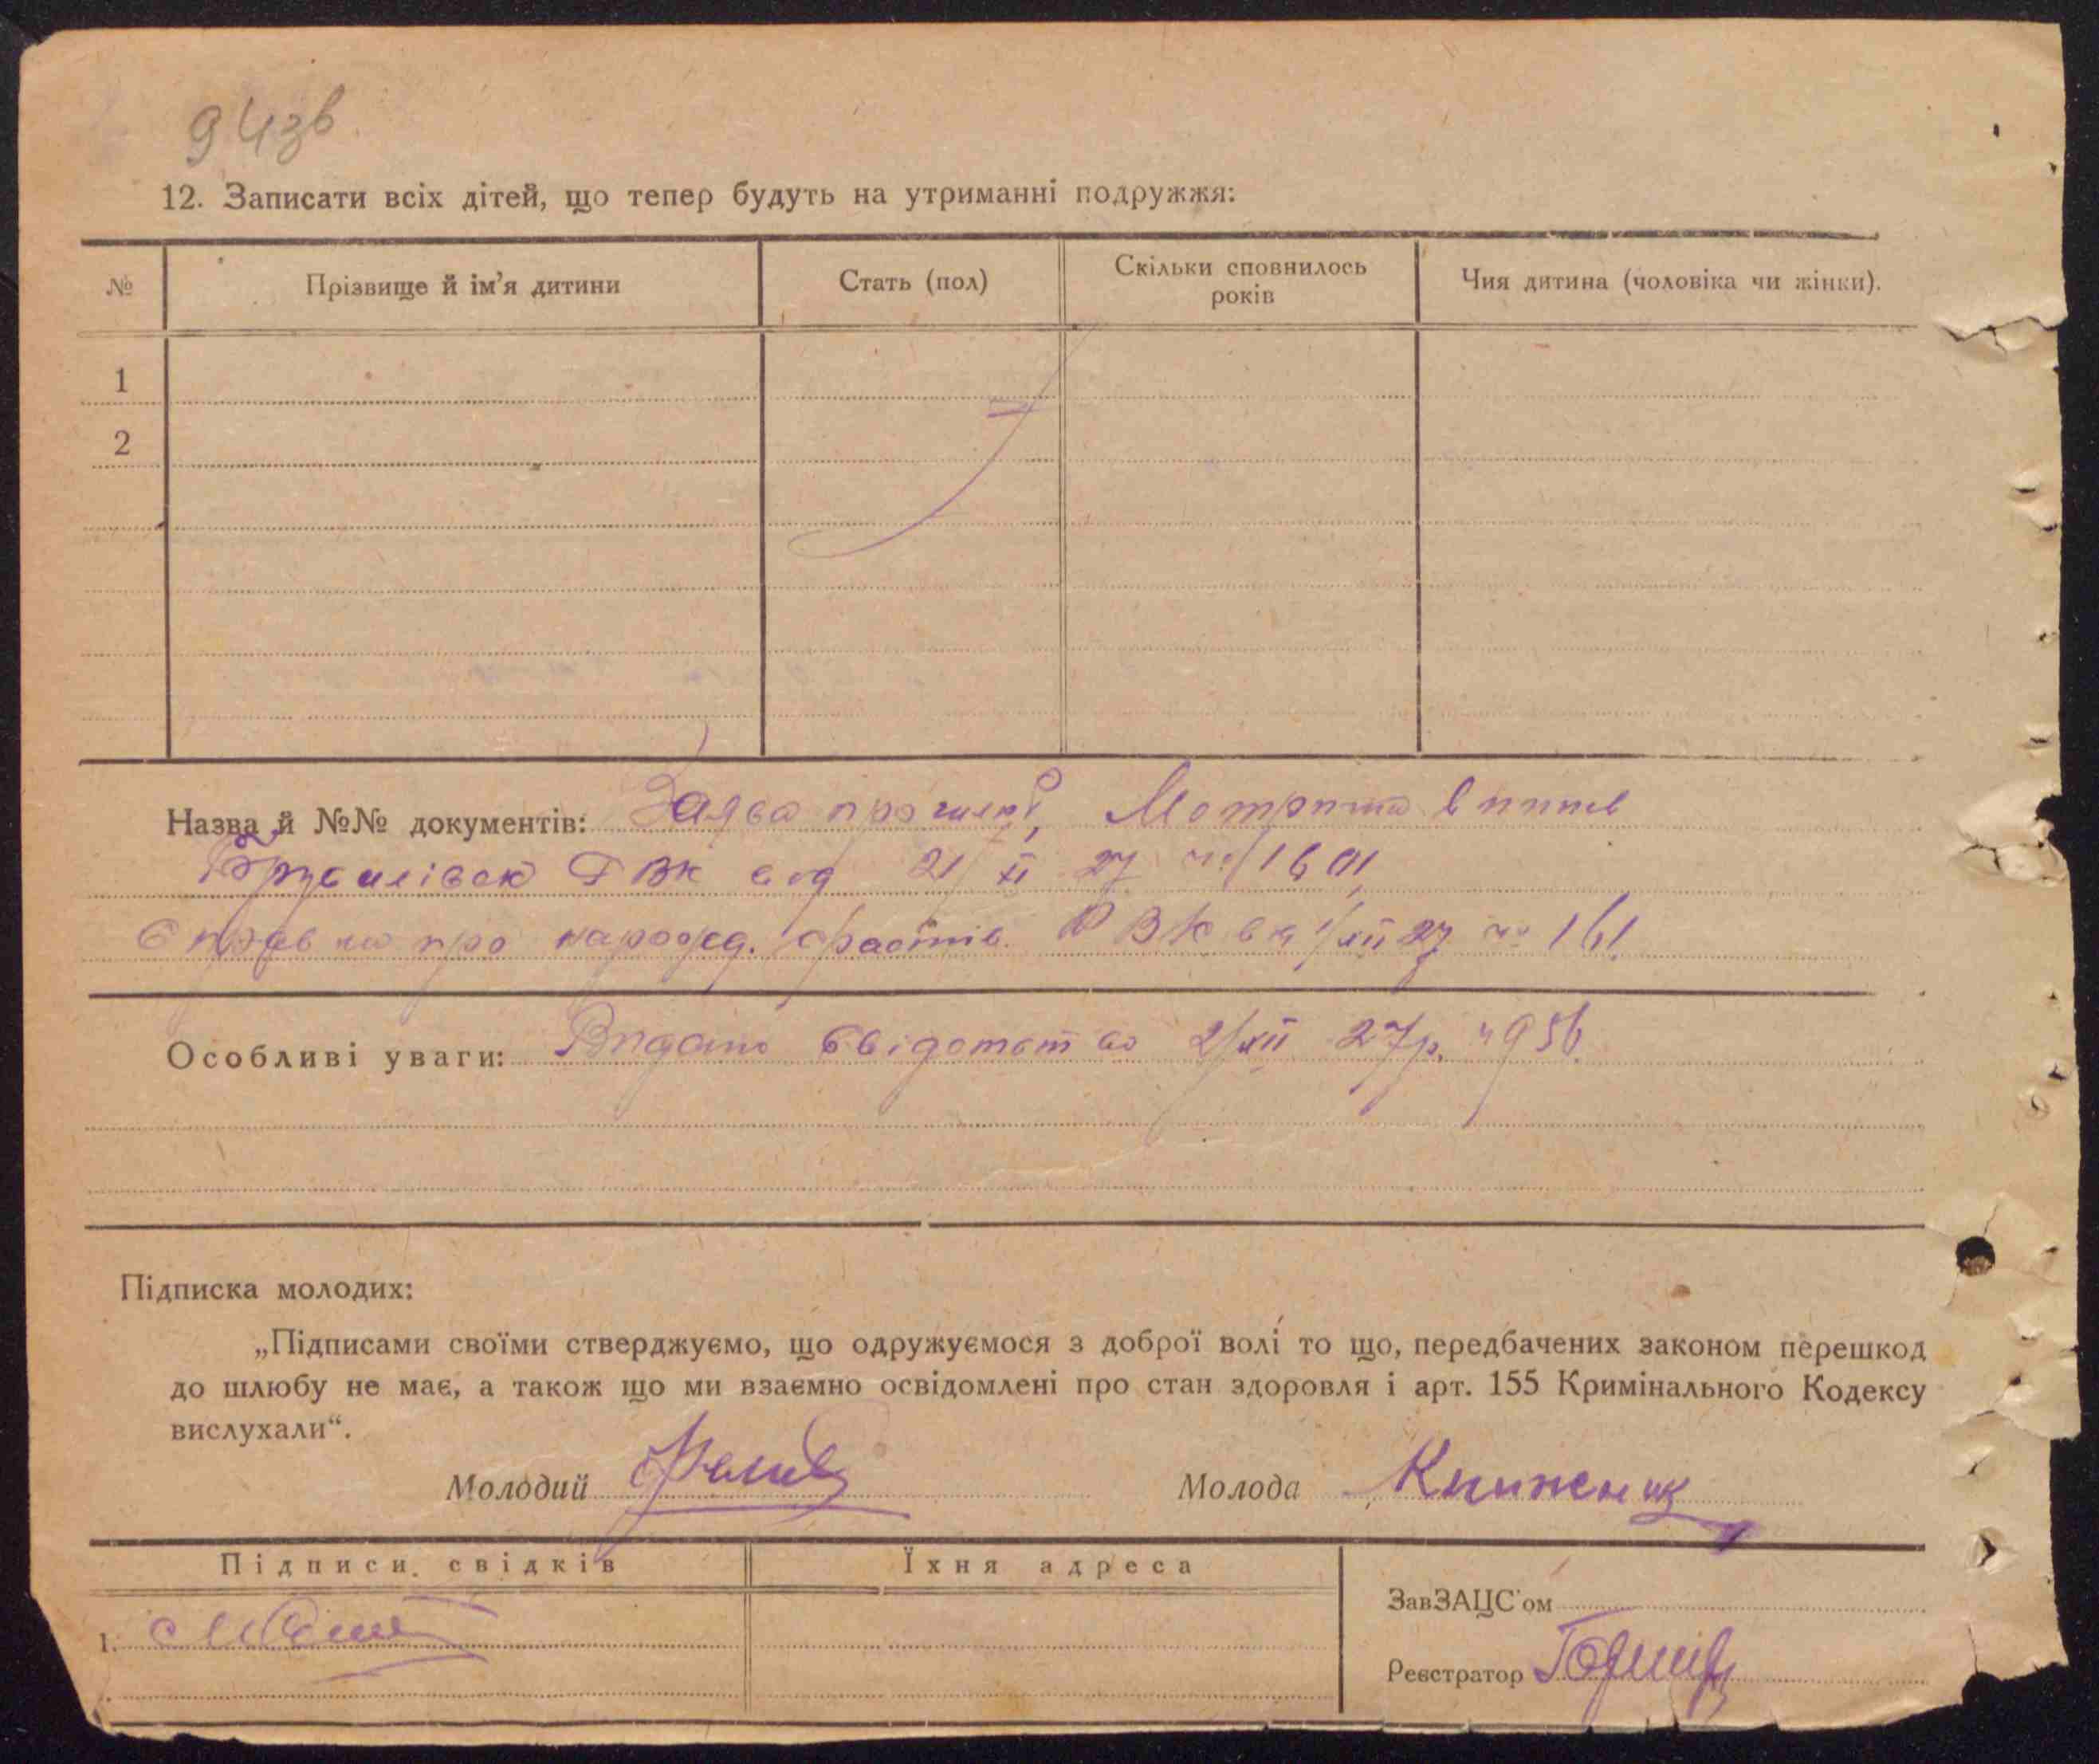 94зв
12. Записати всіх дітей, що тепер будуть на утриманні подружжя:
№ Прізвище й ім'я дитини Стать (пол) Скільки сповнилось років Чия дитина (чоловіка чи жінки).
1
2
Назва й №№ документів: Заява про шлюб, Метричн випис
Брусилівск РВК від 21/XI 27 №1601,
Справка про народжд. Фастів. РВК від 1/XII 27 № 161.
Особливі уваги: Видано свідотство 2/XII 27р. ч 956.
Підписка молодих:
„Підписами своїми стверджуємо, що одружуємося з доброї волі то що, передбачених законом перешкод
до шлюбу не має, а також що ми взаємно освідомлені про стан здоровля і арт. 155 Кримінального Кодексу
вислухали“.
Молодий Молода Книжник
Підписи свідків Їхня адреса
ЗавЗАЦС'ом
1.
Реєстратор